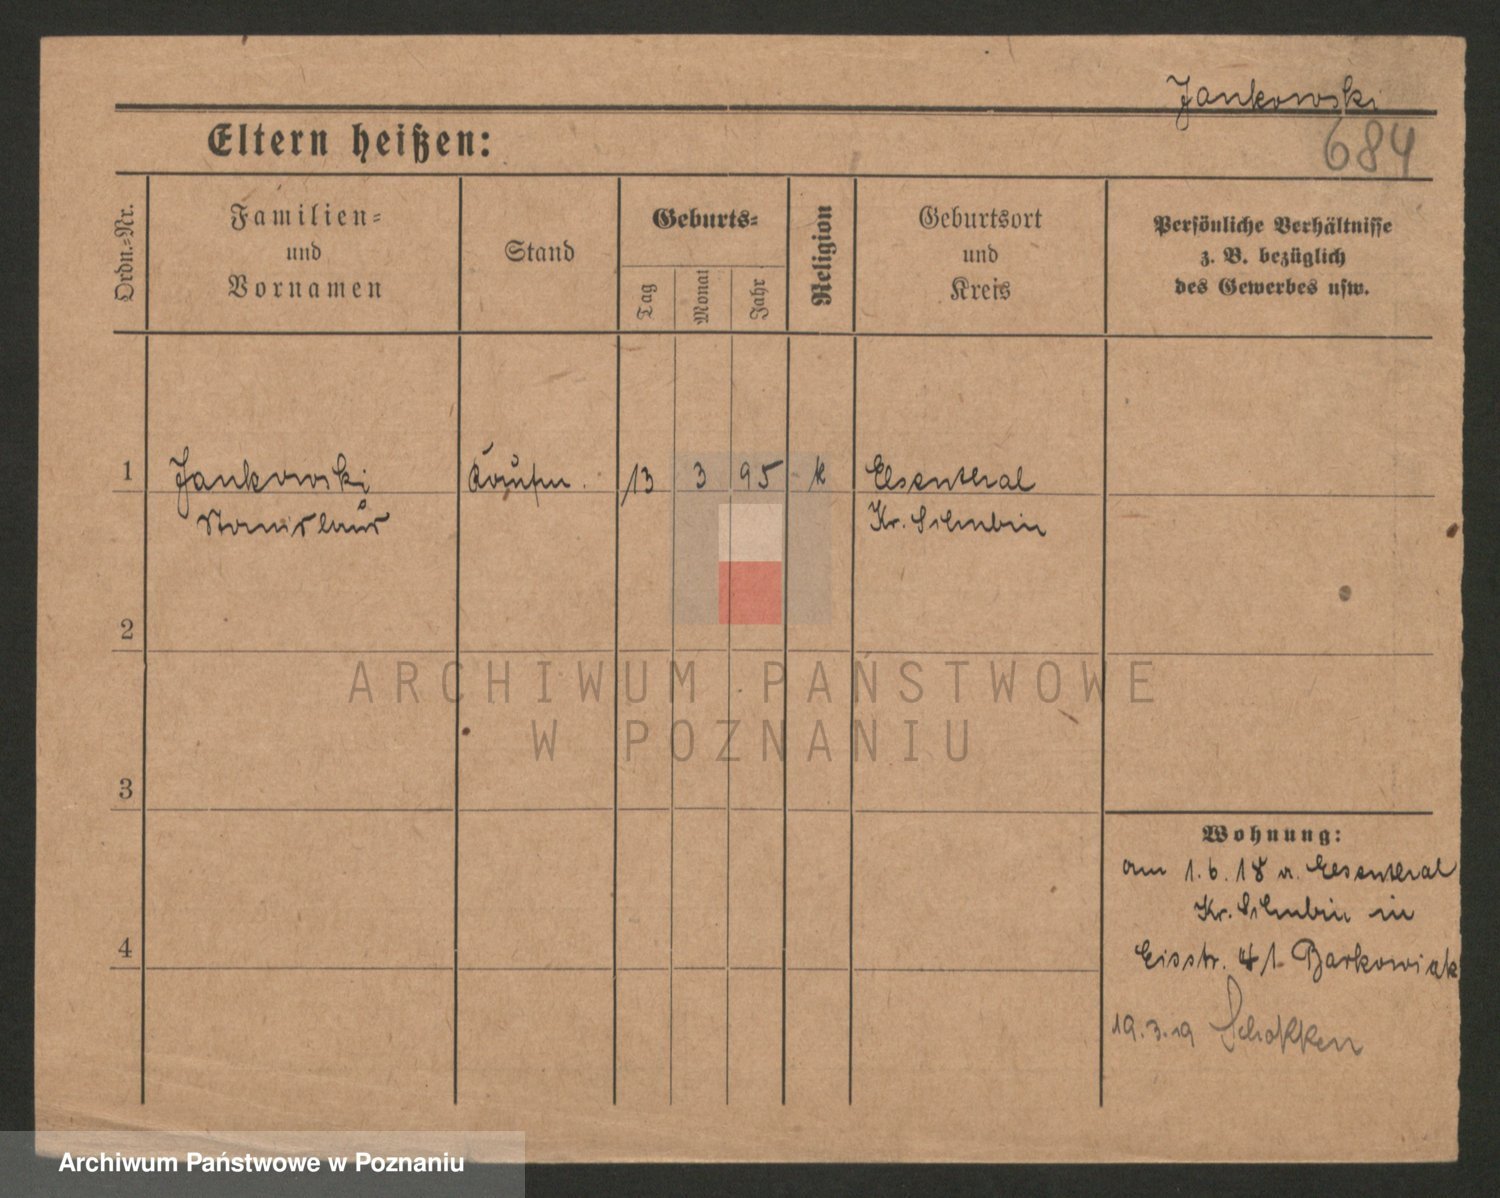 Jankowski
684
Eltern heißen:
Ordn.=Nr.
Familien=
und
Vornamen
Stand
Geburts=
Tag
Monat
Jahr
Religion
Geburtsort
und
Kreis
Persönliche Verhältnisse
z. B. bezüglich
des Gewerbes usw.
1
Jankowski
Kaufm.
13
3
95
k
Elsenthal
Stanislaus
Kr. Schubin
2
3
4
Wohnung:
am 1.6.18 v. Elsenthal
Kr. Schubin in
Eisstr. 41 Barkowiak
19.3.19 Schokken
ARCHIWUM PAŃSTWOWE
W POZNANIU
Archiwum Państwowe w Poznaniu